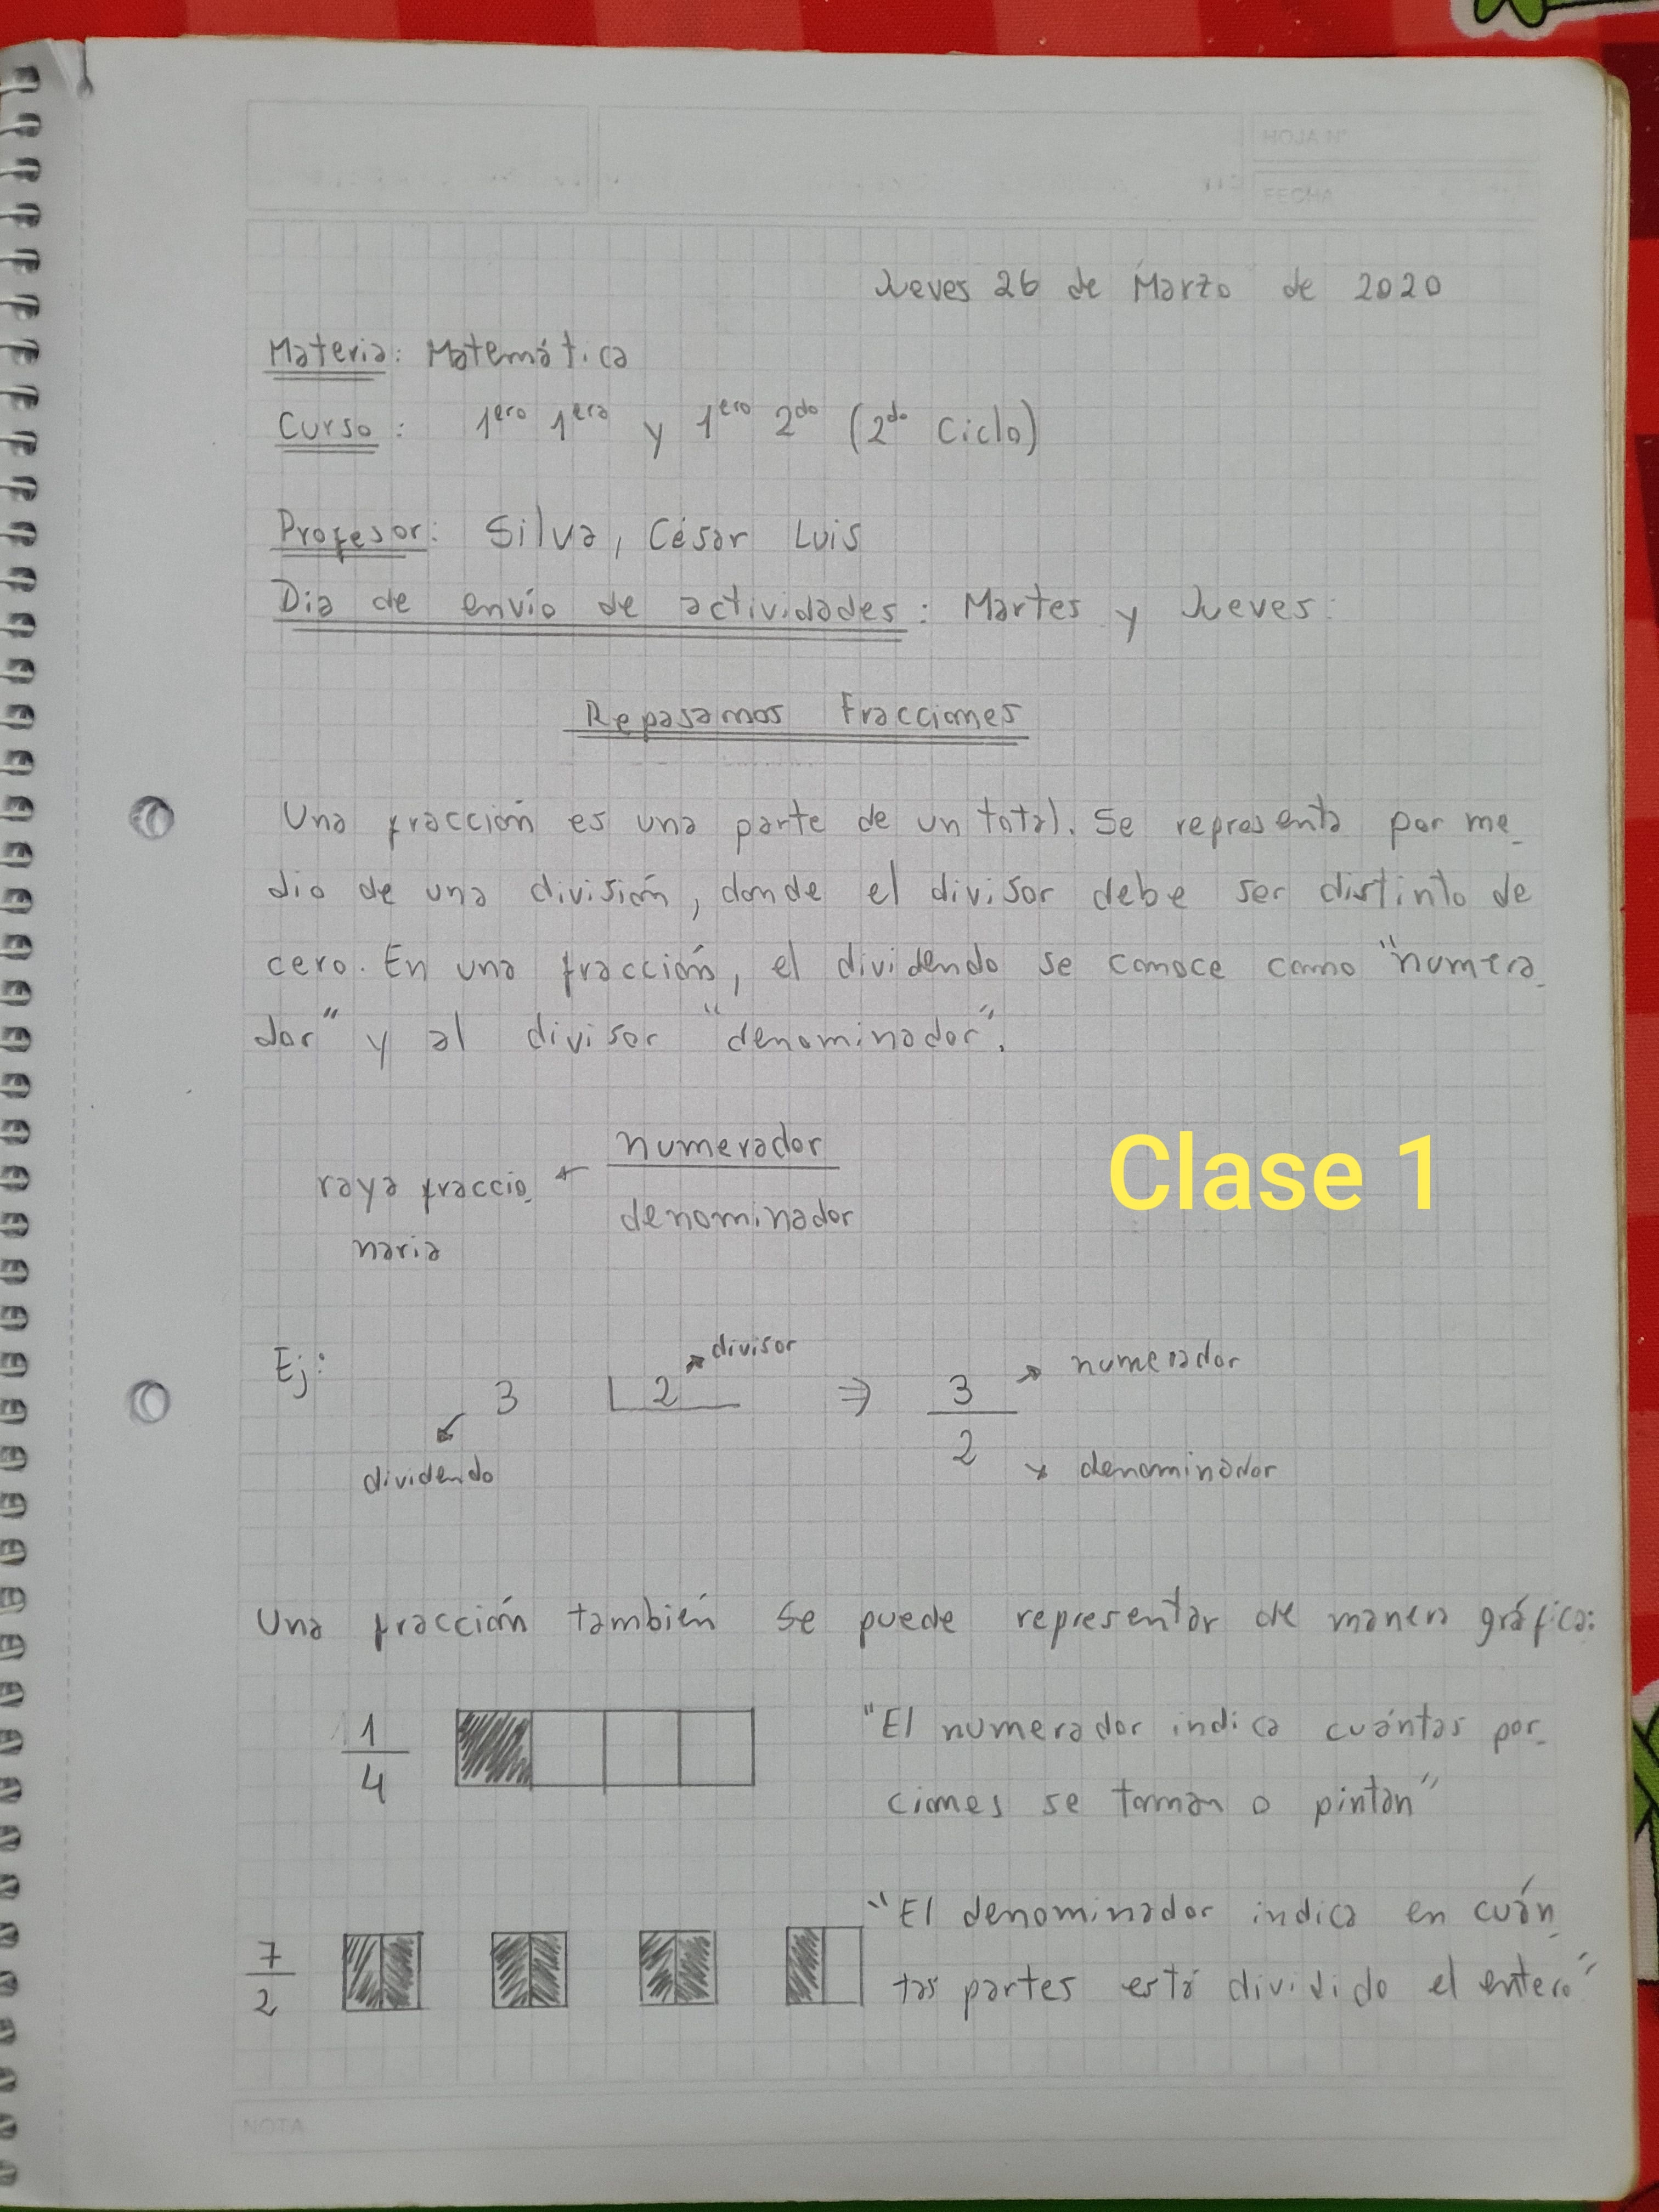 HOJA N°
FECHA
Jueves 26 de Marzo de 2020
Materia: Matemática
Curso: 1ero 1era y 1ero 2do (2do Ciclo)
Profesor: Silva, César Luis
Dia de envío de actividades: Martes y Jueves.
Repasamos Fracciones
Una fracción es una parte de un total. Se representa por me-
dio de una división, donde el divisor debe ser distinto de
cero. En una fracción, el dividendo se conoce como "numera-
dor" y al divisor "denominador".
numerador
raya fraccio-
denominador
naria
Clase 1
Ej:
divisor
3 2 ⇒ 3 numerador
2 denominador
dividendo
Una fracción también se puede representar de manera gráfica:
1
4
"El numerador indica cuántas por-
ciones se toman o pintan"
7
2
"El denominador indica en cuán-
tas partes está dividido el entero"
NOTA